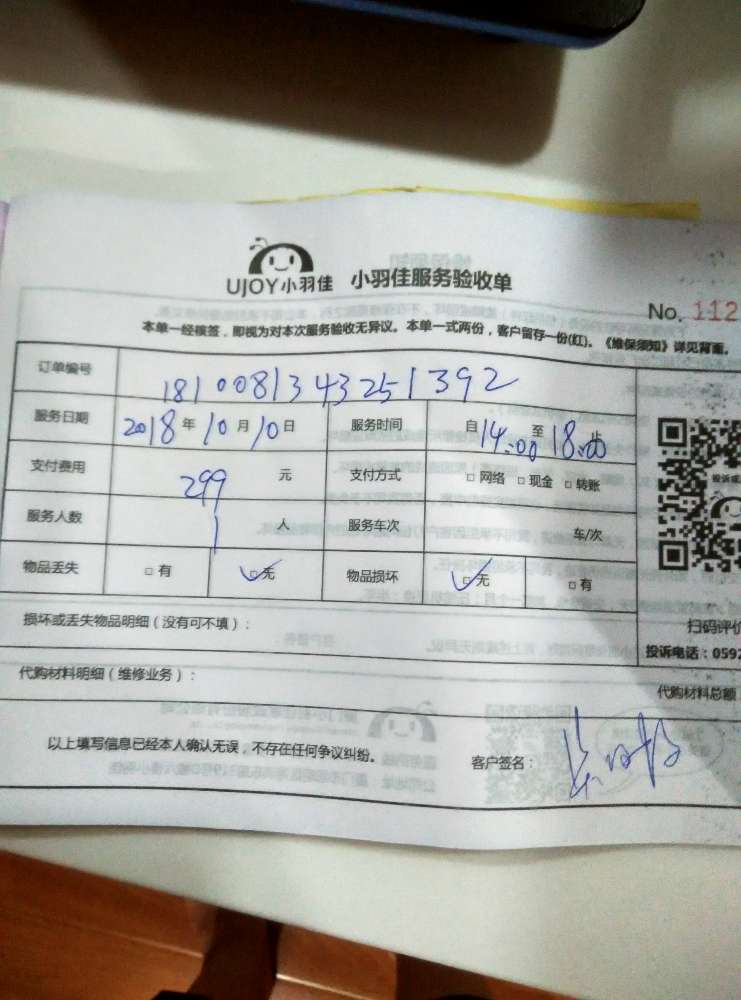 UJOY小羽佳 小羽佳服务验收单
No. 112
本单一经核签，即视为对本次服务验收无异议。本单一式两份，客户留存一份(红)。《维保须知》详见背面。
订单编号 1810081343251392
服务日期 2018年10月10日 服务时间 自14:00至18:00止
支付费用 299 元 支付方式 □ 网络 □ 现金 □ 转账
服务人数 1 人 服务车次 车/次
物品丢失 □ 有 □ 无 物品损坏 □ 无 □ 有
损坏或丢失物品明细（没有可不填）：
扫码评价
投诉电话：0592
代购材料明细（维修业务）：
代购材料总额
以上填写信息已经本人确认无误，不存在任何争议纠纷。 客户签名：